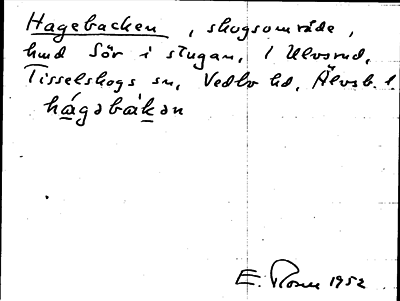 Hagebacken, skogsområde,
hmd Sör i stugan, 1 Ulvsrud,
Tisselskogs sn, Vedbo hd, Älvsb. l.
hágəbàkən
E. Rosen 1952